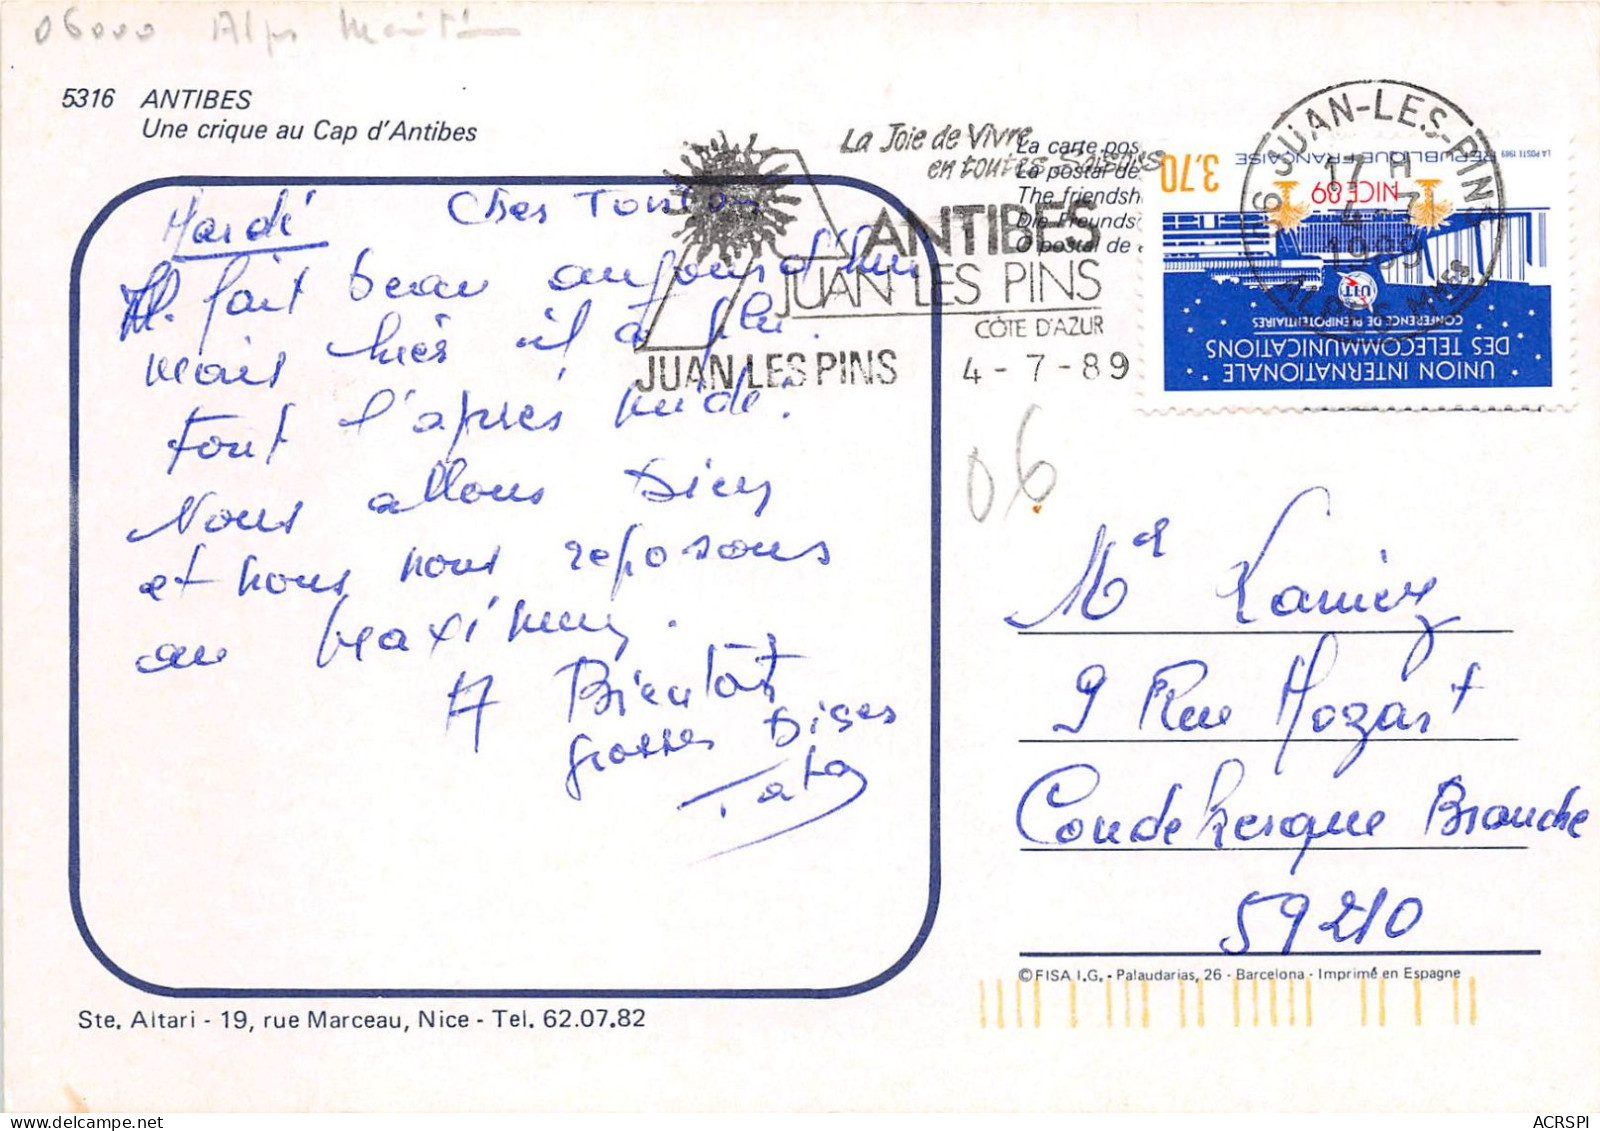 06000 Alps Marit
5316 ANTIBES
Une crique au Cap d'Antibes
Mardi Cher Tonton
Il fait beau aujourd'hui
mais hier il a plu
tout l'après midi.
Nous allons bien
et nous nous reposons
au maximum.
A Bientôt
grosses Bises
Tata
Ste. Altari - 19, rue Marceau, Nice - Tel. 62.07.82
La Joie de Vivre
en toutes Saisons
ANTIBES
JUAN LES PINS
CÔTE D'AZUR
JUAN LES PINS
4 - 7 - 89
La carte pos
La postal de
The friendsh
Die Freunds
O postal de
06 JUAN-LES-PINS
17 H
4 - 7
1989
ALPES-MMES
3,70
RÉPUBLIQUE FRANÇAISE
LA POSTE 1989
NICE 89
UIT
CONFÉRENCE DE PLÉNIPOTENTIAIRES
UNION INTERNATIONALE
DES TÉLÉCOMMUNICATIONS
06
Mr
9 Rue Mozart
Coudekerque Branche
59210
© FISA I.G. - Palaudarias, 26 - Barcelona - Imprimé en Espagne
ACRSPI